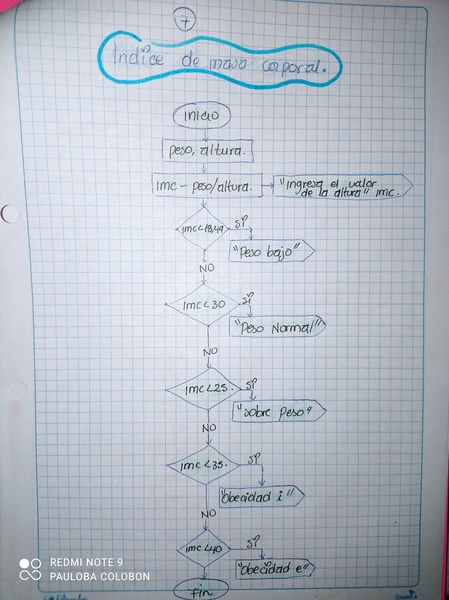 7
Indice de masa corporal.
inicio
peso, altura.
imc - peso/altura.
"ingresa el valor
de la altura" imc.
imc<18,49
SI
"Peso bajo"
NO
imc<30
SI
"Peso Normal"
NO
imc<25.
SI
"sobre peso"
NO
imc<35.
SI
"obecidad i"
NO
imc<40
SI
"obecidad e"
fin
REDMI NOTE 9
PAULOBA COLOBON